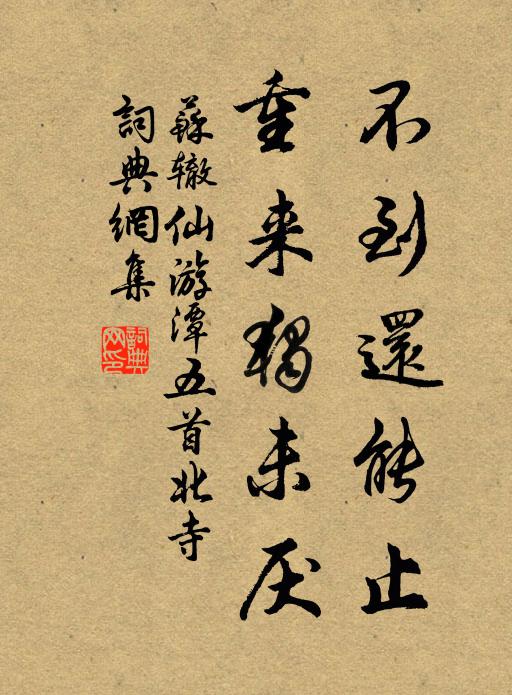 不到還能止
重来獨未厌
蘇辙仙游潭五首北寺
詞典網集
詞典网印